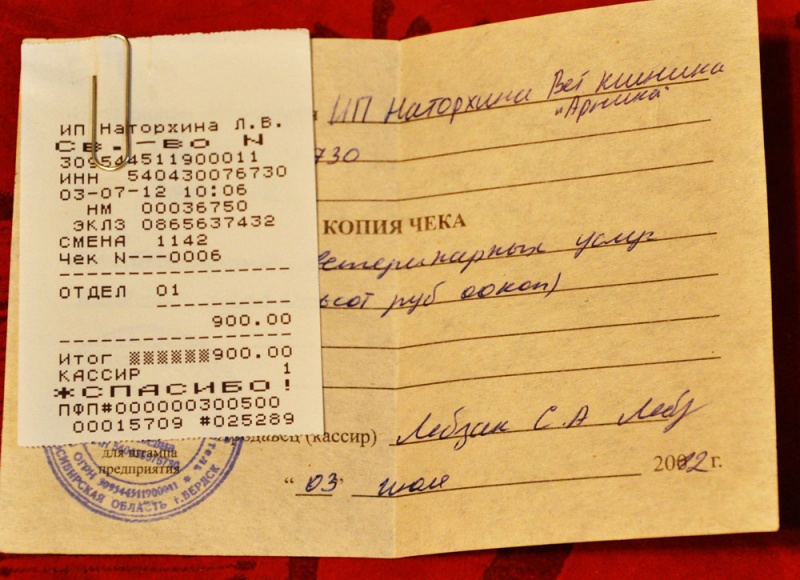 ИП Наторхина Л.В.
Св.-во N
309544511900011
ИНН 540430076730
03-07-12 10:06
НМ 00036750
ЭКЛЗ 0865637432
СМЕНА 1142
Чек N---0006
ОТДЕЛ 01
900.00
Итог ▒▒▒▒▒▒900.00
КАССИР 1
*СПАСИБО!
ПФП#000000300500
00015709 #025289
ИП Наторхина Вет клиника
"Арника"
730
КОПИЯ ЧЕКА
етеринарных услуг
ьсот руб 00коп)
(кассир) Лебзак С.А Лебз
для штампа
предприятия
"03" июля 2012 г.
ОГРН 309544511900011
СИБИРСКАЯ ОБЛАСТЬ г.БЕРДСК